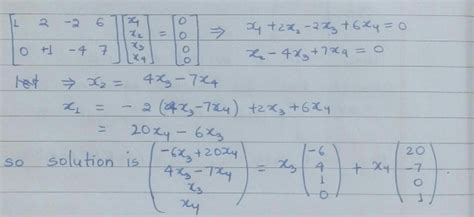 [1 2 -2 6; 0 +1 -4 7] [x₁; x₂; x₃; x₄] = [0; 0; 0; 0] ⇒ x₁+2x₂-2x₃+6x₄=0
x₂-4x₃+7x₄=0
⇒ x₂= 4x₃-7x₄
x₁ = -2(4x₃-7x₄)+2x₃+6x₄
= 20x₄-6x₃
so solution is (-6x₃+20x₄; 4x₃-7x₄; x₃; x₄) = x₃(-6; 4; 1; 0) + x₄(20; -7; 0; 1).